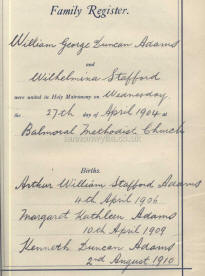 Family Register.
William George Duncan Adams
and
Wilhelmina Stafford
were united in Holy Matrimony on Wednesday
the 27th day of April 1904 at
Balmoral Methodist Church
Births.
Arthur William Stafford Adams
4th April 1906
Margaret Kathleen Adams
10th April 1909
Kenneth Duncan Adams
2nd August 1910